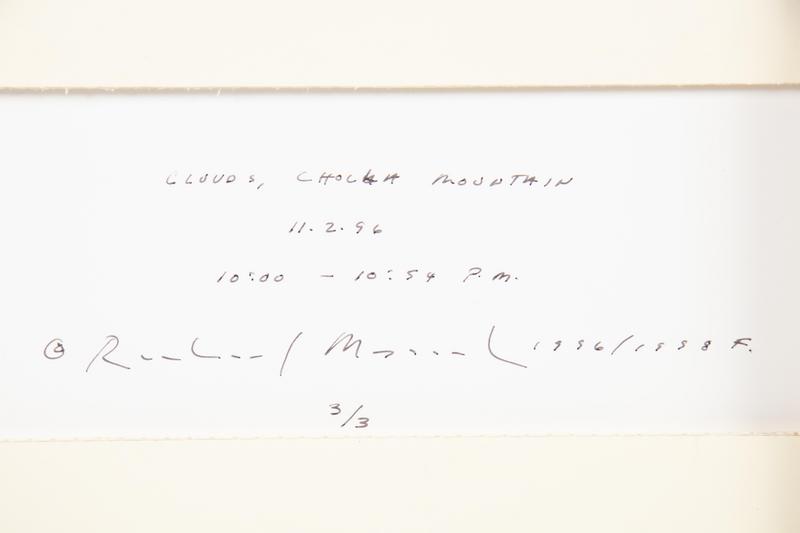 CLOUDS, CHOLLA MOUNTAIN
11.2.96
10:00 – 10:54 P.M.
© Richard Misrach 1996/1998 F.
3/3